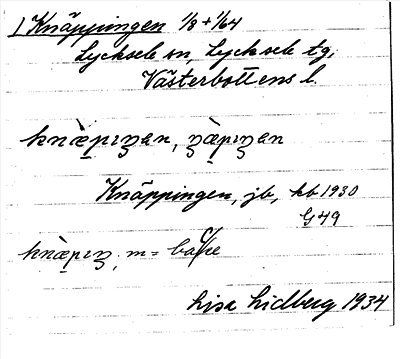 1) Knäppingen 1/8 + 1/64
Lycksele sn, Lycksele tg,
Västerbottens l.
knæ̀pɪŋən, n̥æ̀pɪŋən
Knäppingen, jb, kb 1930
G 49
knæ̀pɪŋ, m = backe
Lisa Lidberg 1934